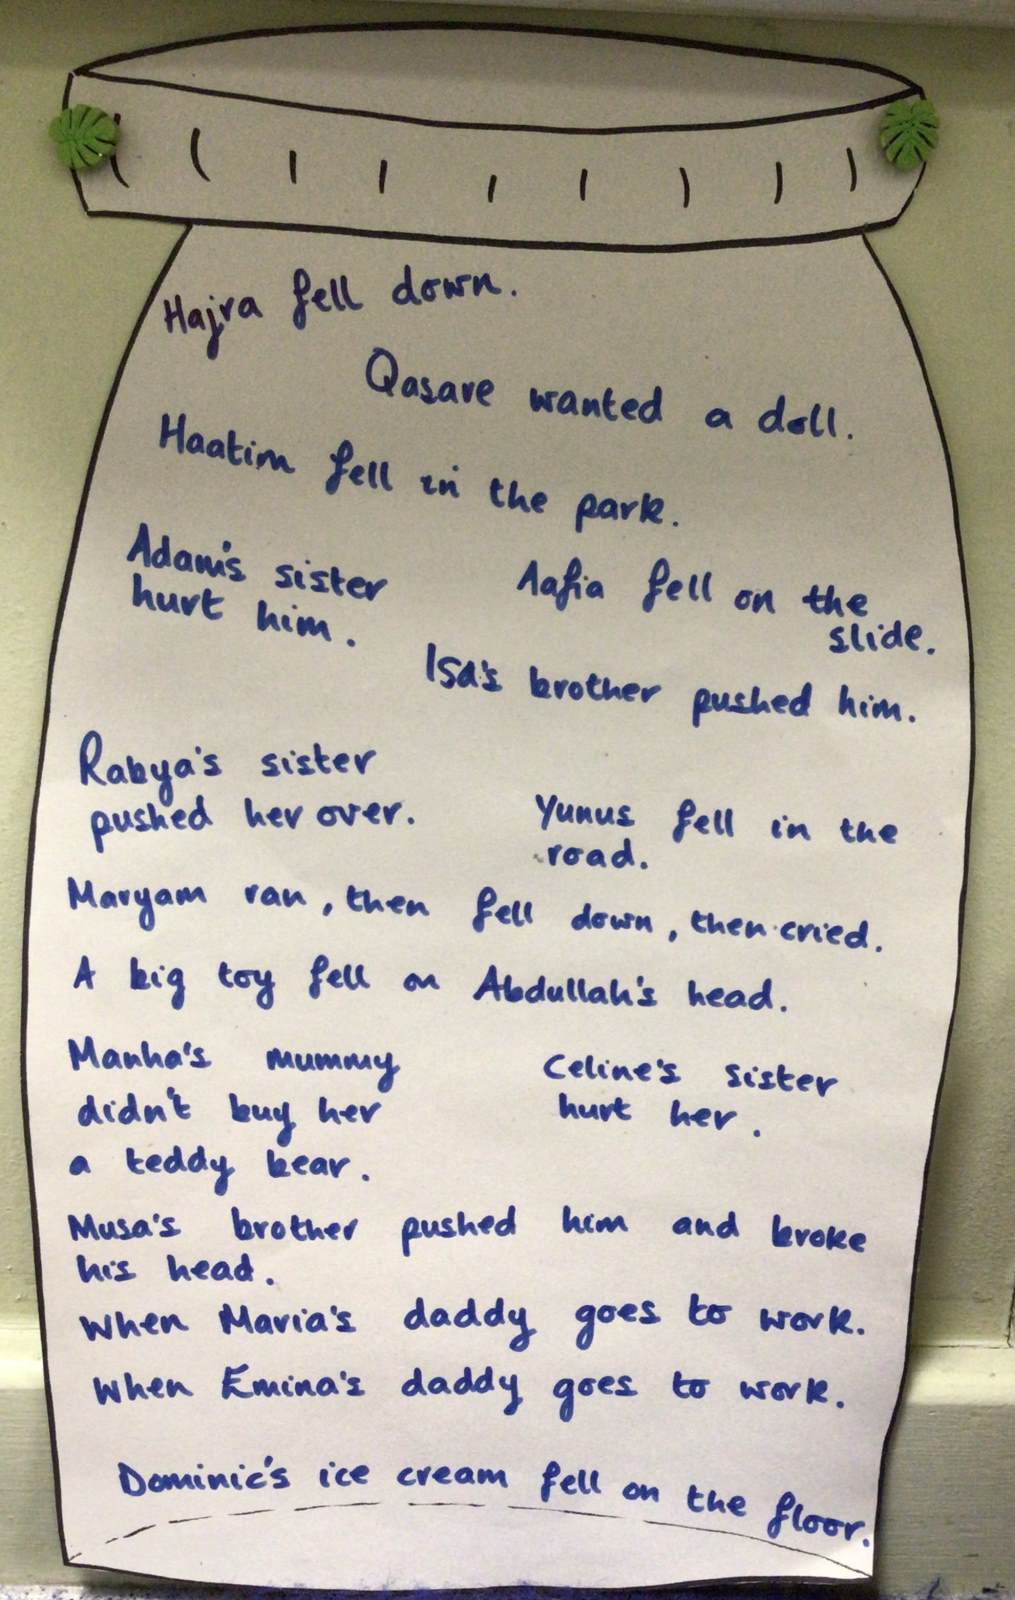 Hajra fell down.
Qasare wanted a doll.
Haatim fell in the park.
Adam's sister
hurt him.
Aafia fell on the
slide.
Isa's brother pushed him.
Rabya's sister
pushed her over.
Yunus fell in the
road.
Maryam ran, then fell down, then cried.
A big toy fell on Abdullah's head.
Manha's mummy
didn't buy her
a teddy bear.
Celine's sister
hurt her.
Musa's brother pushed him and broke
his head.
When Maria's daddy goes to work.
When Emina's daddy goes to work.
Dominic's ice cream fell on the floor.